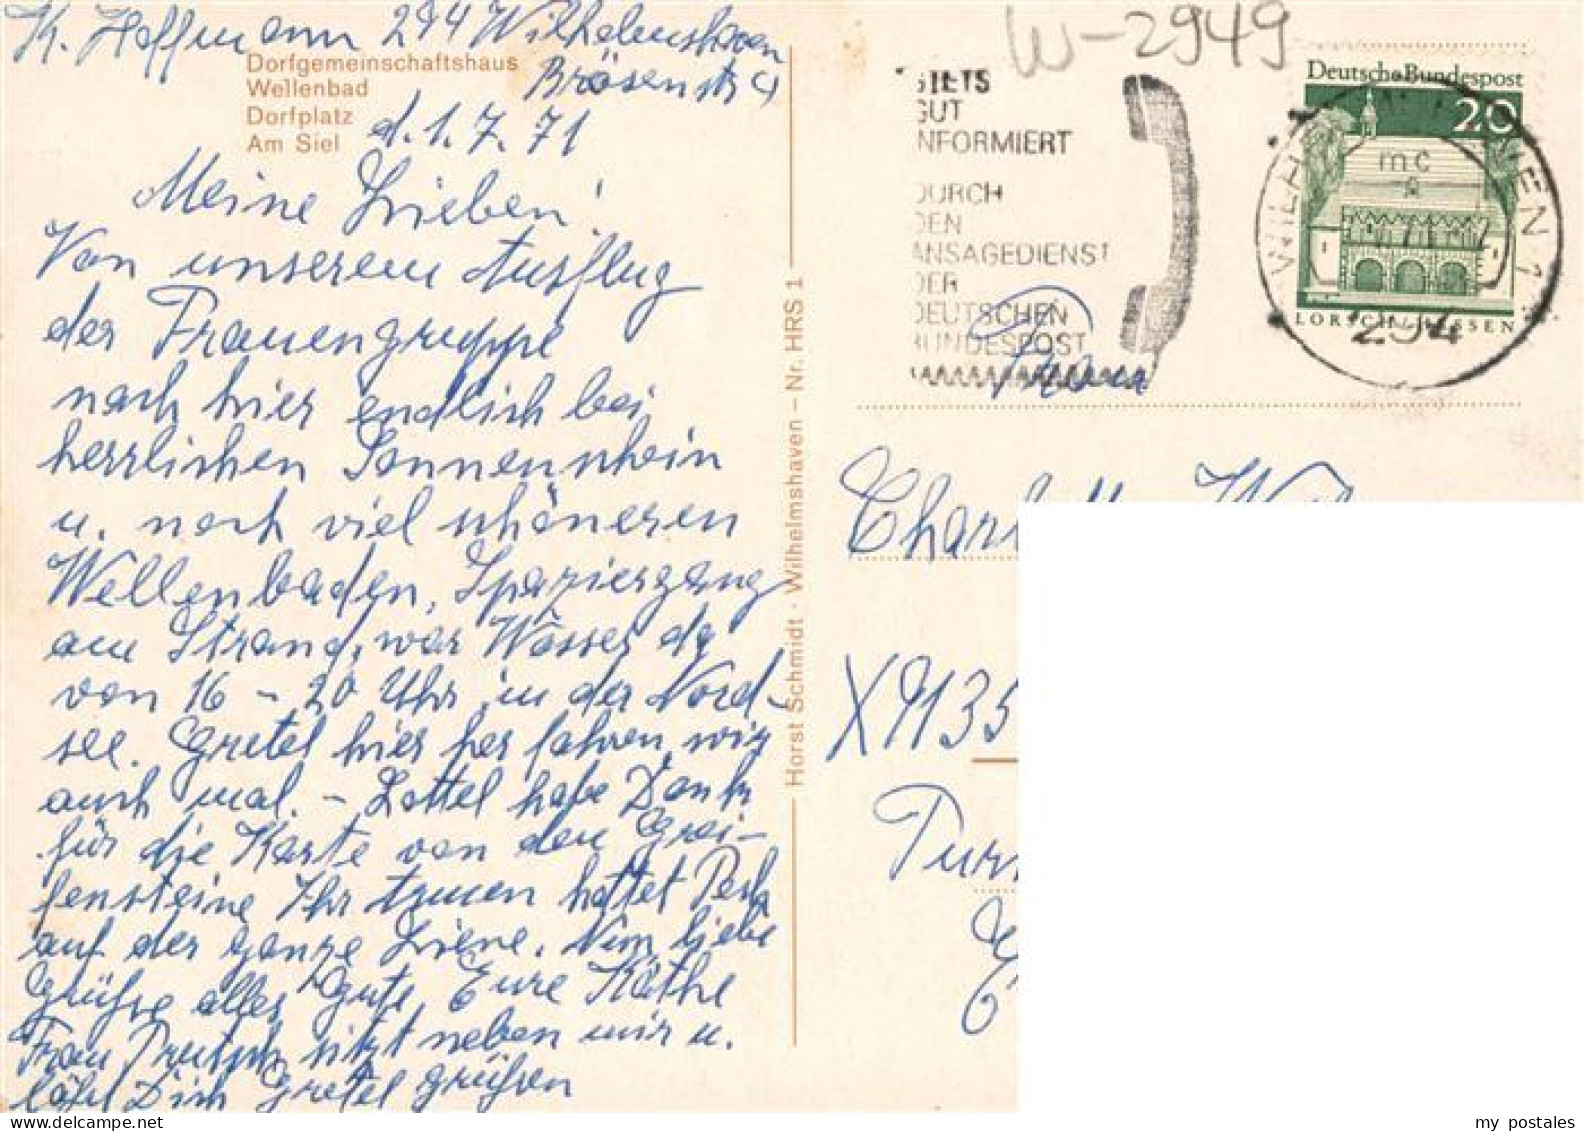 K. Hoffmann 294 Wilhelmshaven
Brösenstr 9
Dorfgemeinschaftshaus
Wellenbad
Dorfplatz
Am Siel
d. 1. 7. 71
Meine Lieben!
Von unserem Ausflug
der Frauengruppe
nach hier endlich bei
herrlichen Sonnenschein
u. noch viel schöneren
Wellenbaden, Spaziergang
am Strand, war Wasser da
von 16 - 20 Uhr in der Nord-
see. Gretel hier her fahren wir
auch mal. - Lottel habe Dank
für die Karte von den Grei-
fensteine Ihr armen hattet Pech
auf der ganze Liene. Nun liebe
Grüße alles Gute Eure Käthe
Frau sitzt neben mir u.
läßt Dich Gretel grüßen
Horst Schmidt · Wilhelmshaven - Nr. HRS 1
W-2949
STETS
GUT
NFORMIERT
DURCH
DEN
ANSAGEDIENST
DER
DEUTSCHEN
BUNDESPOST
Deutsche Bundespost
20
LORSCH/HESSEN
WILH VEN 1
mc
294
Frau
Charl
X9135
Pur
my postales